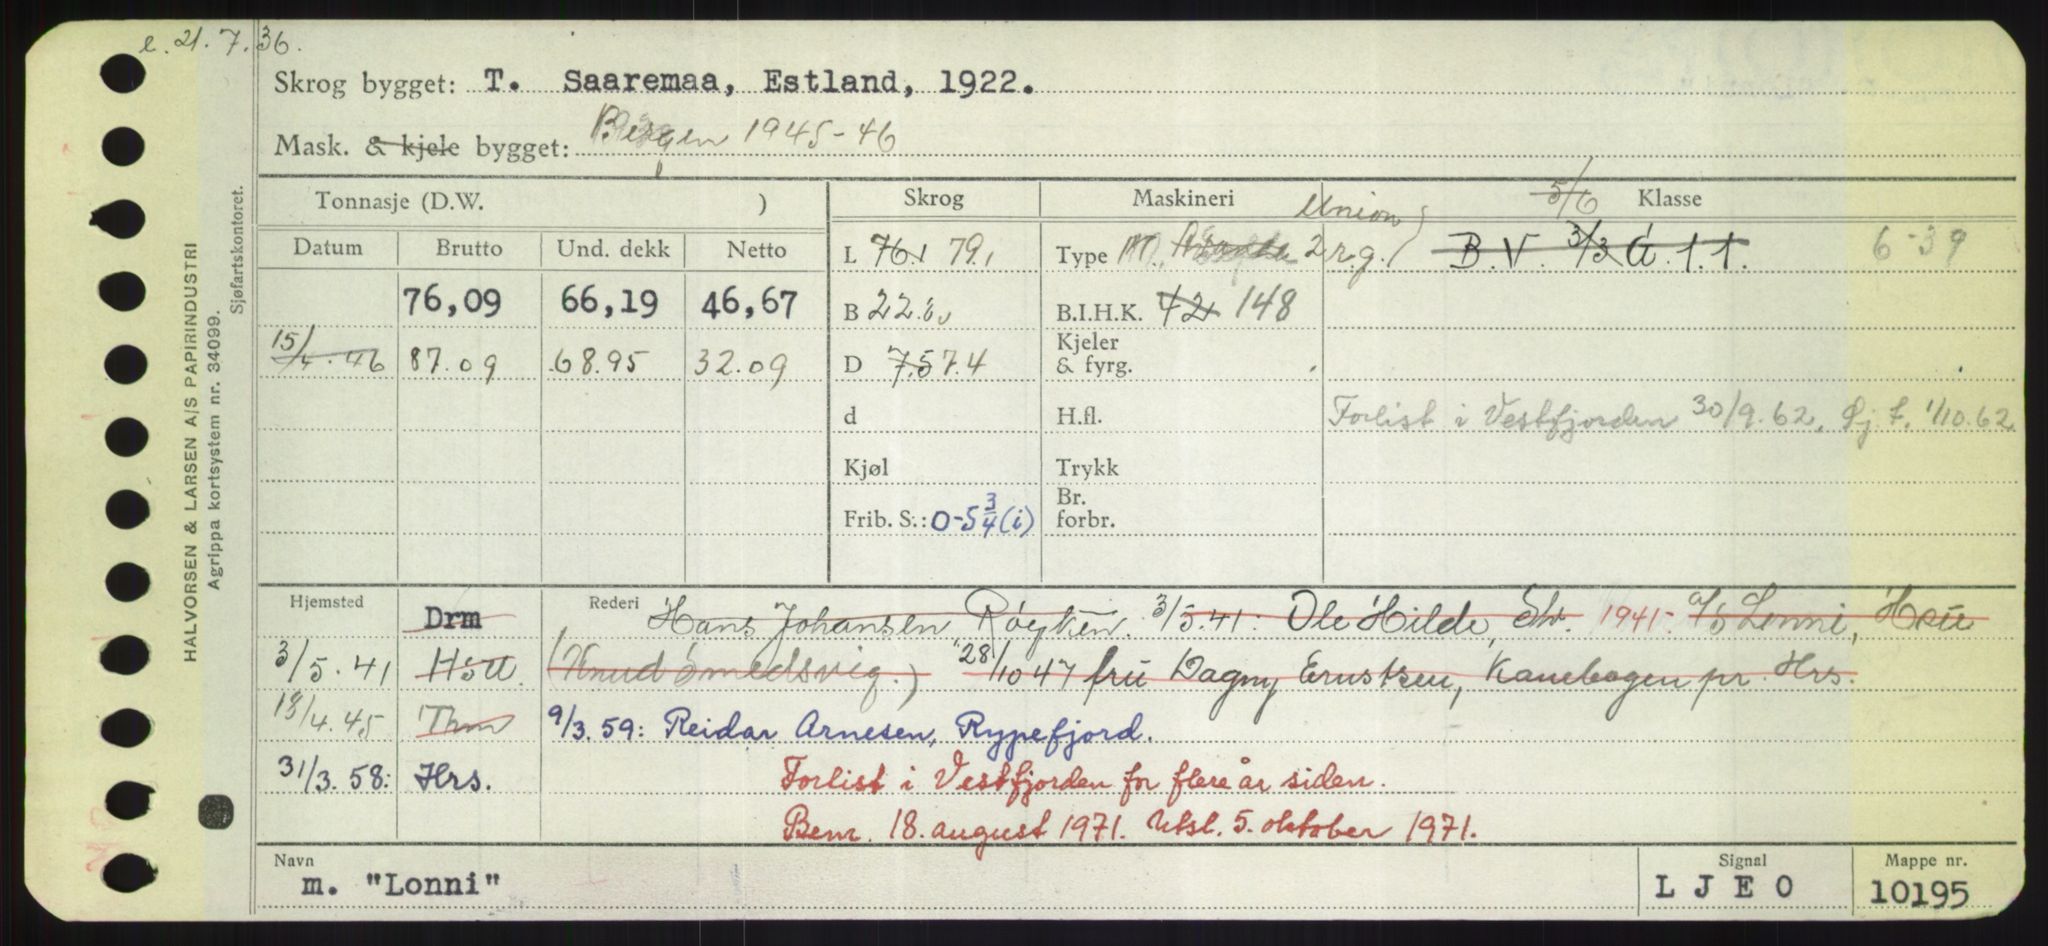 e. 21.7.36.
Skrog bygget: T. Saaremaa, Estland, 1922.
Mask. & kjele bygget: Bergen 1945-46
Tonnasje (D.W. ) Skrog Maskineri Union 5/6 Klasse
Datum Brutto Und. dekk Netto L 76,1 79,1 Type M. 2 r.g. B.V. 3/3 G. 1.1. 6-39
76,09 66,19 46,67 B B.I.H.K. 42 148
15/4.46 87.09 68.95 32.09 D 7.5 7.4 Kjeler & fyrg.
d H.fl. Forlist i Vestfjorden 30/9.62. Sj.f. 1/10.62
Kjøl Trykk
Frib. S.: 0-5 3/4 (i) Br. forbr.
Hjemsted Drm Rederi Hans Johansen Røyken. 3/5.41: Ole Hilde, 1941. a/s Lonni, Hsu
3/5.41 (Knud Smedsvig.) 28/10 47 fru Dagny Ernstsen, Kanebogen pr. Hrs.
13/4.45 Thm 9/3.59: Reidar Arnesen, Rypefjord.
31/3.58: Hrs. Forlist i Vestfjorden for flere år siden.
Bem. 18. august 1971. Utsl. 5. oktober 1971.
Navn m. "Lonni" Signal L J E O Mappe nr. 10195
HALVORSEN & LARSEN A/S PAPIRINDUSTRI
Agrippa kortsystem nr. 34099.
Sjøfartskontoret.